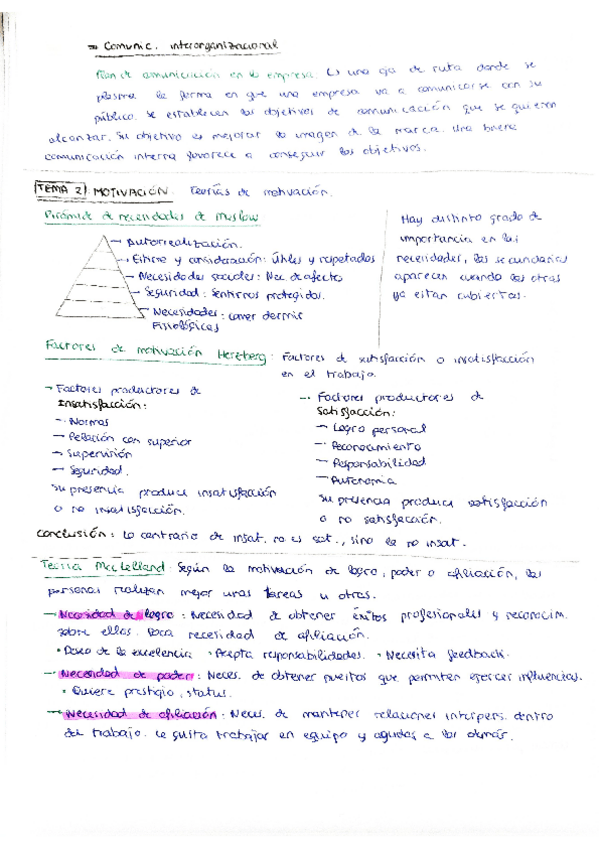 ⇒ Comunic. interorganizacional
Plan de comunicación en la empresa. Es una oja de ruta donde se
plasma la forma en que una empresa va a comunicarse con su
público. Se establecen los objetivos de comunicación que se quieren
alcanzar. Su objetivo es mejorar la imagen de la marca. Una buena
comunicación interna favorece a conseguir los objetivos.
TEMA 2: MOTIVACIÓN. Teorías de motivación.
Pirámide de necesidades de Maslow
→ Autorrealización.
→ Estima y consideración: útiles y respetados
→ Necesidades sociales: Nec. de afecto
→ Seguridad: Sentirnos protegidos.
→ Necesidades: comer dormir
Fisiológicas
Hay distinto grado de
importancia en las
necesidades, las secundarias
aparecen cuando las otras
ya estan cubiertas.
Factores de motivación Herzberg: Factores de satisfacción o insatisfacción
en el trabajo.
→ Factores productores de
Insatisfacción:
→ Normas
→ Relación con superior
→ Supervisión
→ Seguridad.
Su presencia produce insatisfacción
o no insatisfacción.
→ Factores productores de
Satisfacción:
→ Logro personal
→ Reconocimiento
→ Responsabilidad
→ Autonomía
Su presencia produce satisfacción
o no satisfacción.
Conclusión: Lo contrario de insat. no es sat., sino la no insat.
Teoría McClelland: Según la motivación de logro, poder o afiliación, las
personas realizan mejor unas tareas u otras.
→ Necesidad de logro: Necesidad de obtener éxitos profesionales y reconocim.
sobre ellos. Poca necesidad de afiliación.
• Deseo de la excelencia • Acepta responsabilidades. • Necesita feedback.
→ Necesidad de poder: Neces. de obtener puestos que permiten ejercer influencias.
• Quiere prestigio, status.
→ Necesidad de afiliación: Neces. de mantener relaciones interpers. dentro
del trabajo. Le gusta trabajar en equipo y ayudar a los demás.